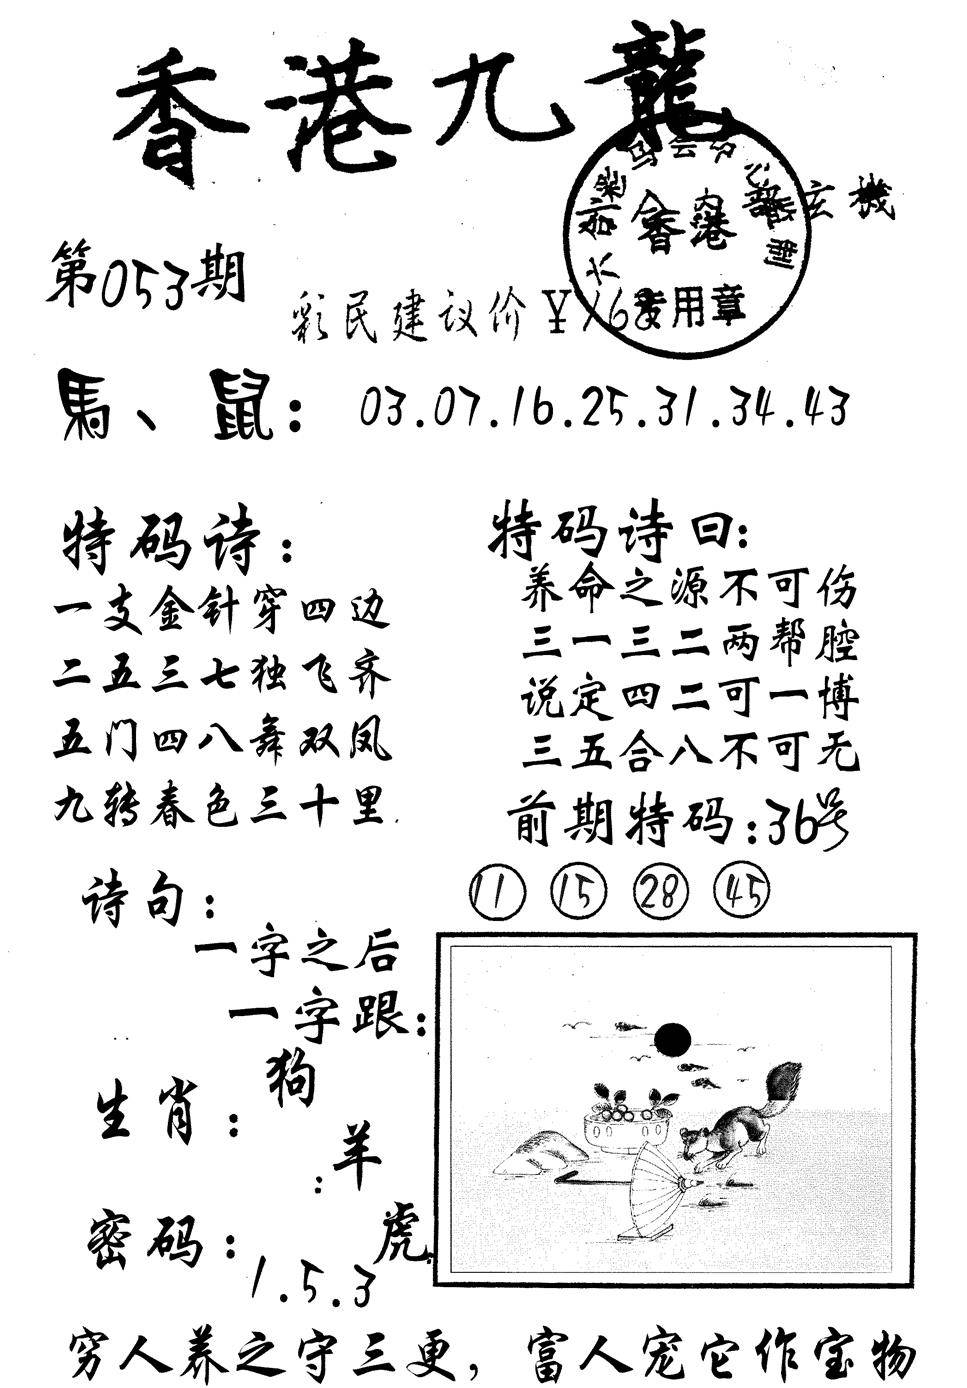 香港九龍
玄機
香港
专用章
第053期
彩民建议价￥168
馬、鼠：03.07.16.25.31.34.43
特码诗：
一支金针穿四边
二五三七独飞齐
五门四八舞双凤
九转春色三十里
特码诗曰：
养命之源不可伤
三一三二两帮腔
说定四二可一博
三五合八不可无
前期特码：36号
11 15 28 45
诗句：
一字之后
一字跟：
生肖：狗
羊
虎
密码：1.5.3
穷人养之守三更，富人宠它作宝物